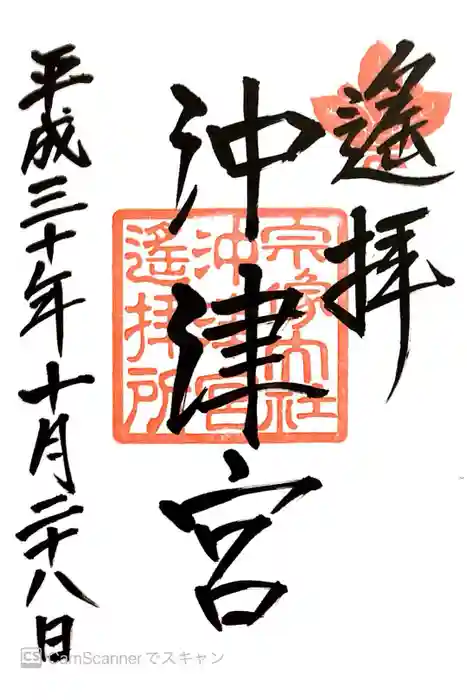 遙拝
沖津宮
宗像大社
沖津宮
遙拝所
平成三十年十月二十八日
CS CamScannerでスキャン